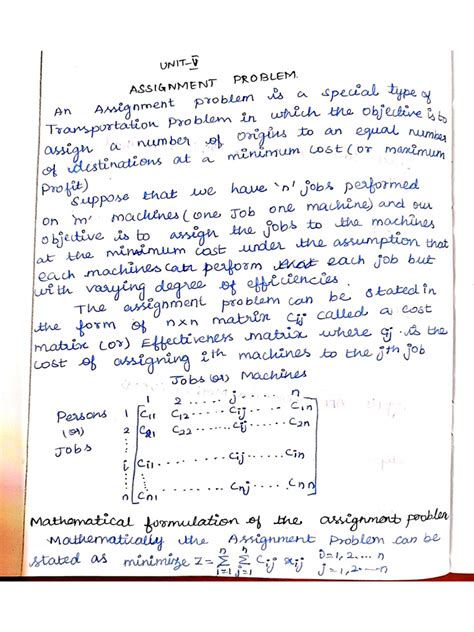 UNIT-V
ASSIGNMENT PROBLEM.
An Assignment problem is a special type of
Transportation Problem in which the objective is to
assign a number of origins to an equal number
of destinations at a minimum cost (or maximum
Profit)
Suppose that we have 'n' jobs performed
on 'm' machines (one Job one machine) and our
objective is to assign the jobs to the machines
at the minimum cost under the assumption that
each machines can perform each job but
with varying degree of efficiencies.
The assignment problem can be stated in
the form of n×n matrix Cij called a cost
matrix (or) Effectiveness matrix where Cij is the
cost of assigning ith machines to the jth job
Jobs (or) Machines
1 2 ...... j ...... n
Persons 1 C11 C12 ..... Cij ..... C1n
(or) 2 C21 C22 ...... C2j ..... C2n
Jobs
i Ci1 ...... Cij ..... Cin
n Cn1 ...... Cnj ..... Cnn
Mathematical formulation of the assignment problem
Mathematically the Assignment Problem can be
stated as minimize Z = n∑i=1 n∑j=1 Cij xij i=1,2....n
j=1,2....n